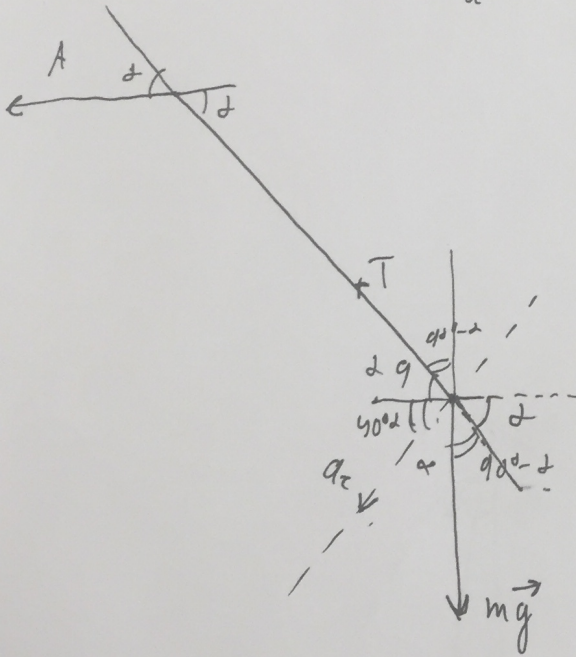 A
α
α
T
90°-α
α
90°-α
α
α
90°-α
a_τ
m\vec{g}